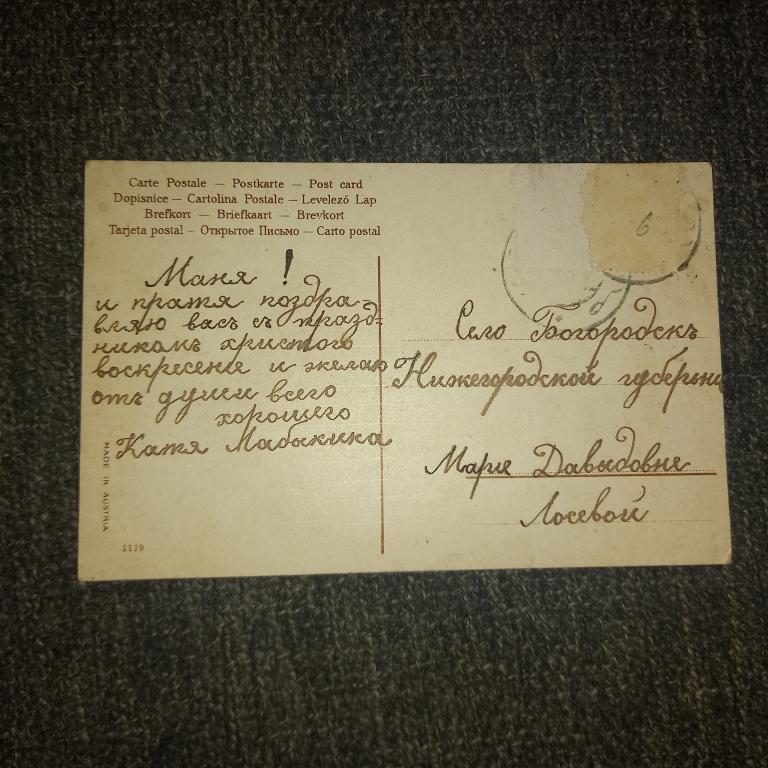 Carte Postale — Postkarte — Post card
Dopisnice — Cartolina Postale — Levelező Lap
Brefkort — Briefkaart — Brevkort
Tarjeta postal — Открытое Письмо — Carto postal
Маня !
и пратя поздра-
вляю васъ съ празд-
никомъ христого
воскресенія и желаю
отъ души всего
хорошего
Катя Мабакина
MADE IN AUSTRIA
1119
6
Село Богородскъ
Нижегородской губерни
Марие Давыдовне
Лосевой